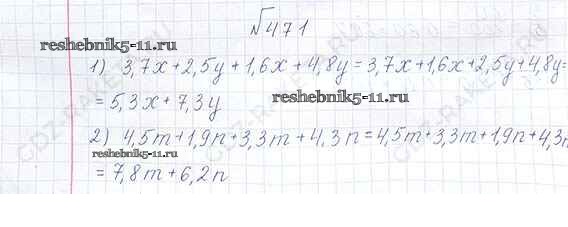 №471
reshebnik5-11.ru
1) 3,7x+2,5y+1,6x+4,8y=3,7x+1,6x+2,5y+4,8y=
=5,3x+7,3y
reshebnik5-11.ru
2) 4,5m+1,9n+3,3m+4,3n=4,5m+3,3m+1,9n+4,3n
reshebnik5-11.ru
=7,8m+6,2n